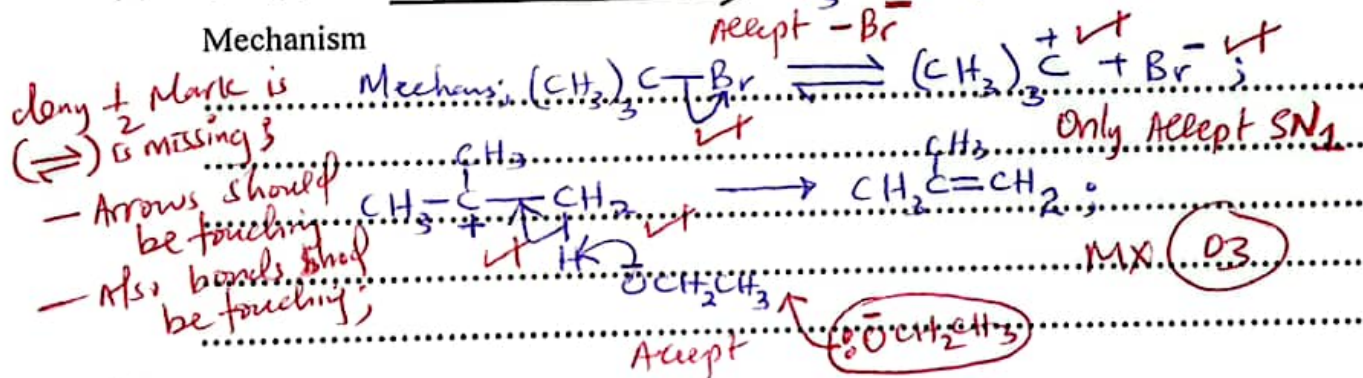 Mechanism
Accept -Br⁻
deny ½ Mark is (⇌) is missing;
Mechanis; (CH₃)₃C—Br ⇌ (CH₃)₃C⁺ + Br⁻ ;
Only Accept SN1
- Arrows should be touching
- Also bonds shod be touching;
CH₃
CH₃-C-CH₂ → CH₃C=CH₂ ;
CH₃
+
H
ŌCH₂CH₃
MX 03
Accept :ŌCH₂CH₃